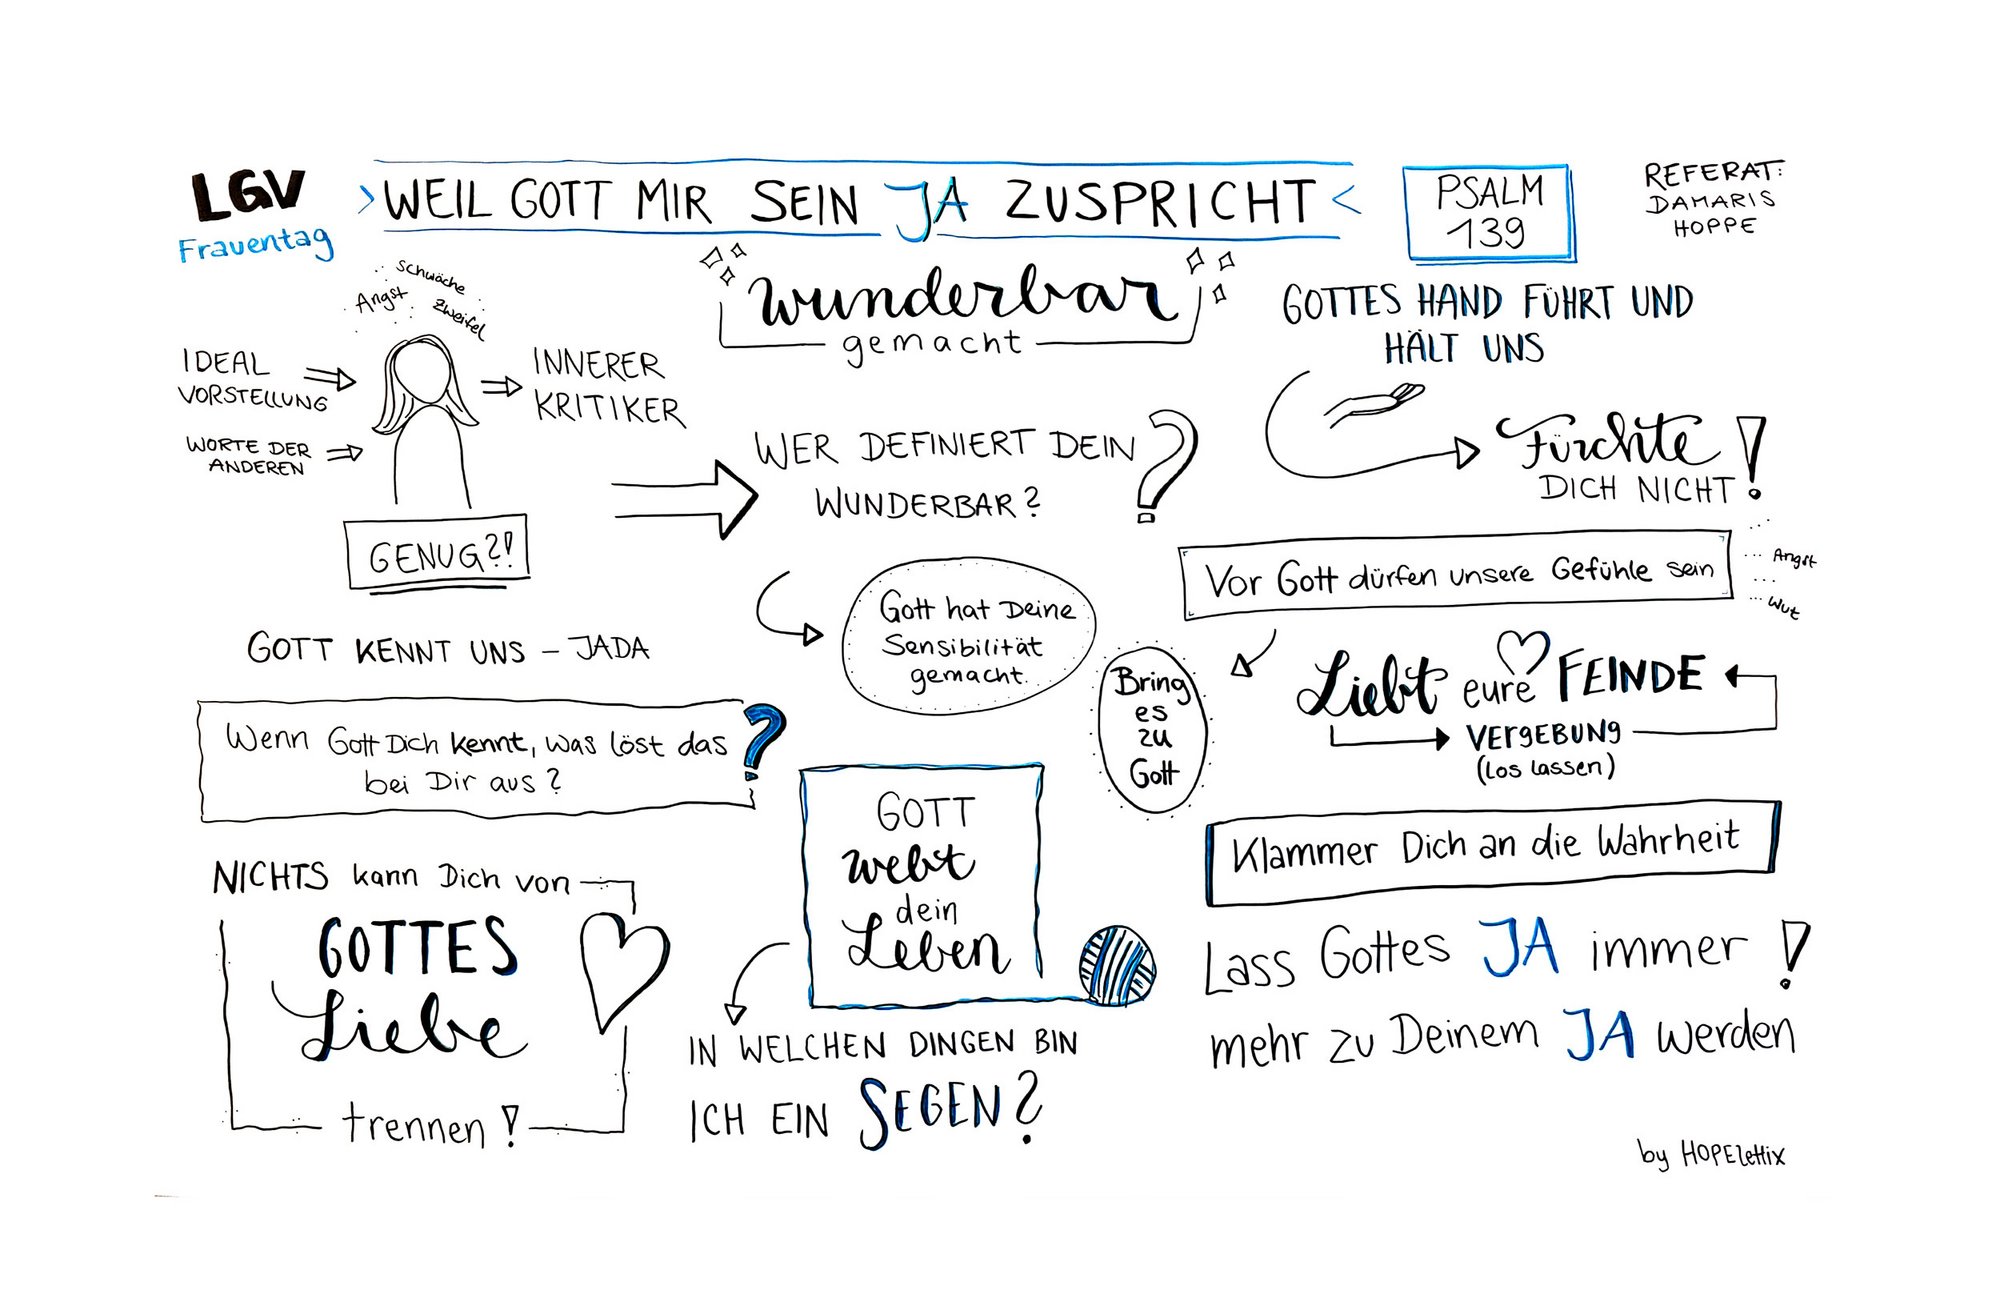 LGV
Frauentag
WEIL GOTT MIR SEIN JA ZUSPRICHT
PSALM
139
REFERAT:
DAMARIS
HOPPE
wunderbar
gemacht
Schwäche
Angst
Zweifel
IDEAL
VORSTELLUNG
WORTE DER
ANDEREN
INNERER
KRITIKER
GENUG?!
WER DEFINIERT DEIN
WUNDERBAR?
?
GOTTES HAND FÜHRT UND
HÄLT UNS
Fürchte
DICH NICHT!
Gott hat Deine
Sensibilität
gemacht.
Vor Gott dürfen unsere Gefühle sein
Angst
Wut
GOTT KENNT UNS – JADA
Wenn Gott Dich kennt, was löst das
bei Dir aus?
?
Bring
es
zu
Gott
Liebt eure FEINDE
VERGEBUNG
(Los lassen)
GOTT
webt
dein
Leben
Klammer Dich an die Wahrheit
NICHTS kann Dich von
GOTTES
Liebe
trennen!
IN WELCHEN DINGEN BIN
ICH EIN SEGEN?
Lass Gottes JA immer
mehr zu Deinem JA werden
!
by HOPElettix